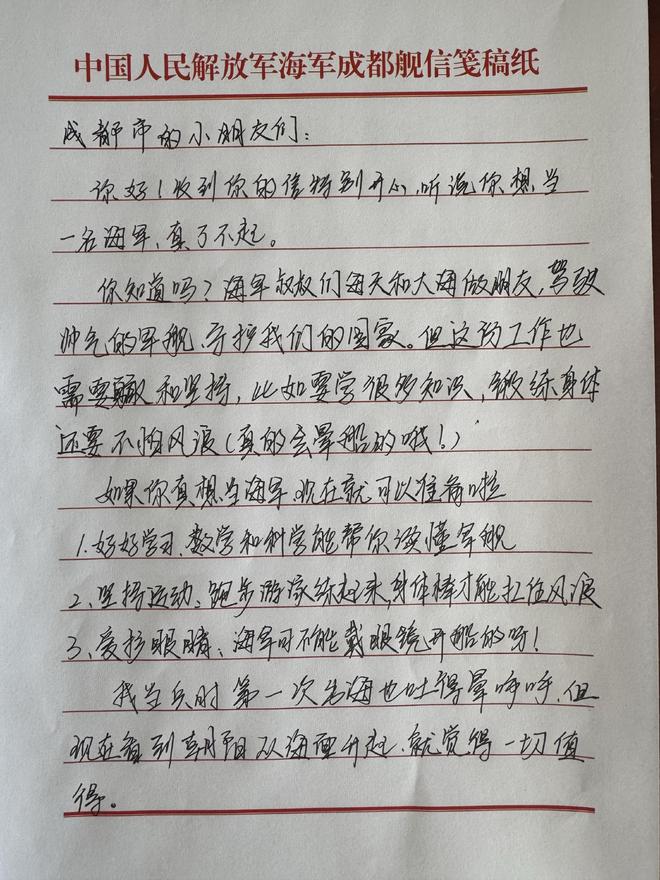 中国人民解放军海军成都舰信笺稿纸
成都市的小朋友们：
你好！收到你的信特别开心，听说你想当
一名海军，真了不起。
你知道吗？海军叔叔们每天和大海做朋友，驾驶
帅气的军舰，守护我们的国家。但这份工作也
需要和坚持，比如要学很多知识，锻练身体
还要不怕风浪（真的会晕船的哦！）
如果你真想当海军，现在就可以准备啦
1、好好学习、数学和科学能帮你读懂军舰
2、坚持运动、跑步游泳练起来，身体棒才能扛住风浪
3、爱护眼睛、海军可不能戴眼镜开船的呀！
我当兵时第一次出海也吐得晕呼呼，但
现在看到朝阳从海面升起，就觉得一切值
得。